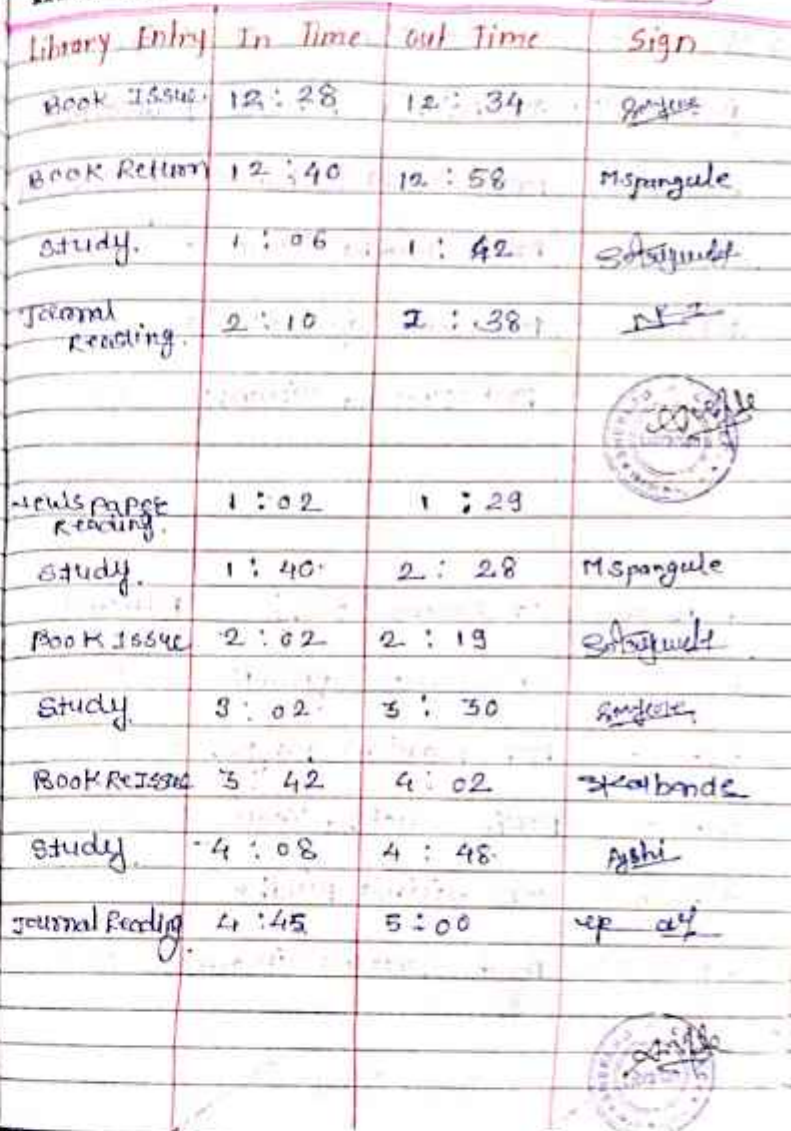 Library Entry In Time Out Time Sign
Book Issue. 12:28 12:34
Book Return 12:40 12:58 Mspangule
Study. 1:06 1:42
Journal
Reading. 2:10 2:38
Newspaper 1:02 1:29
Reading.
Study. 1:40 2:28 Mspangule
Book Issue 2:02 2:19
Study. 3:02 3:30
Book ReIssue 3 42 4:02
Study. 4:08 4:48
Journal Reading 4:45 5:00